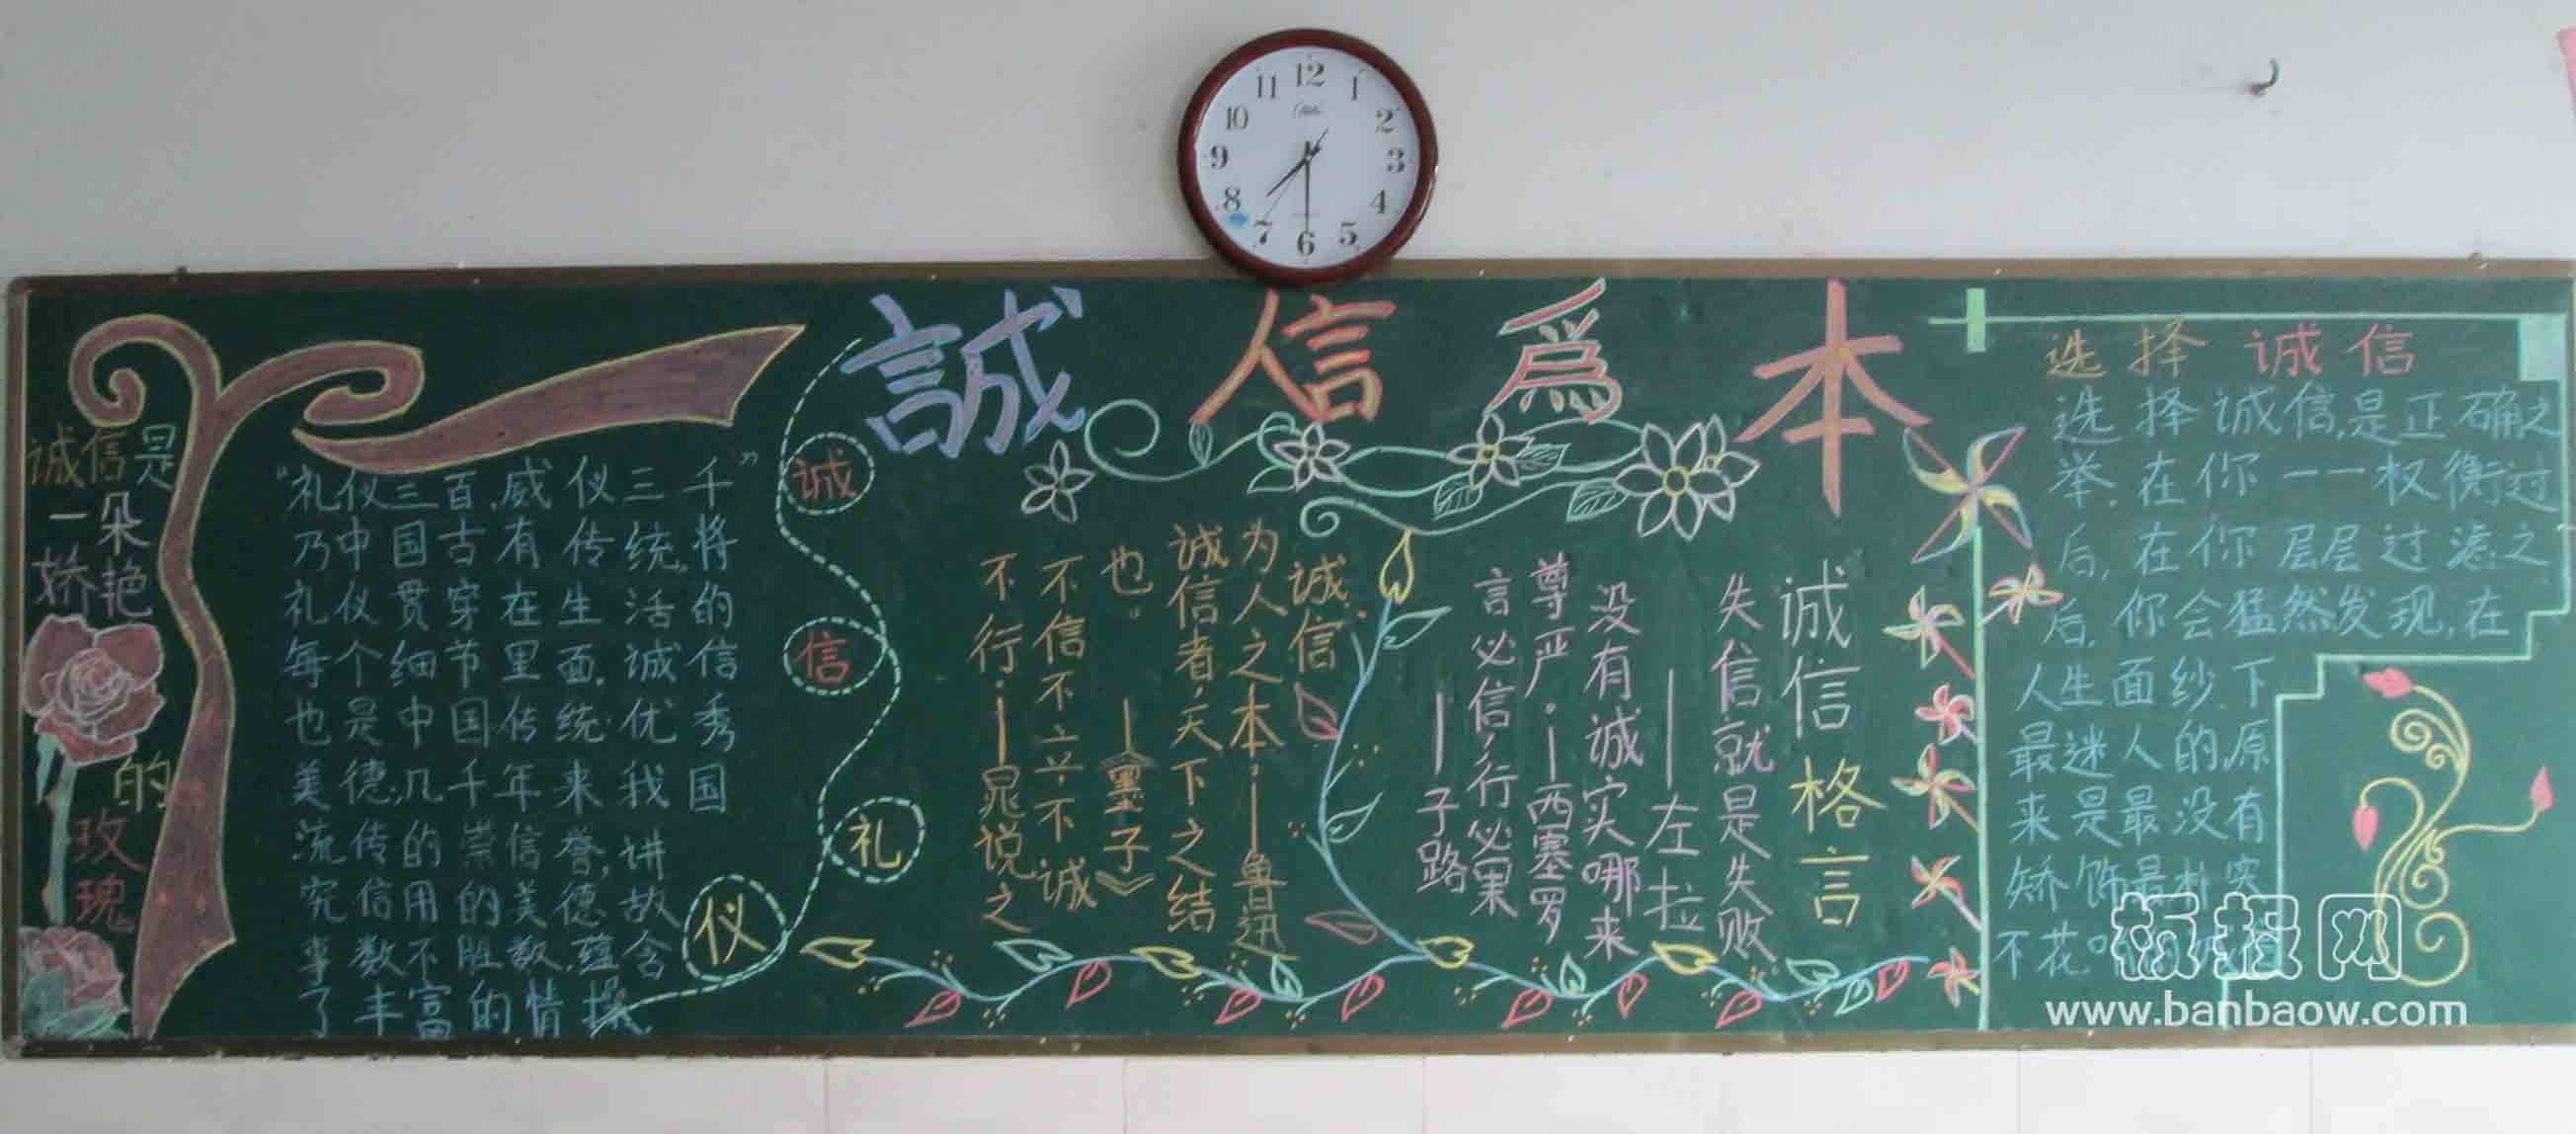 12
1
2
3
4
5
6
7
8
9
10
11
誠信爲本
诚信是
一朵
娇艳
的
玫
瑰
“礼仪三百,威仪三千”
乃中国古有传统,将
礼仪贯穿在生活的
每个细节里面.诚信
也是中国传统优秀
美德,几千年来我国
流传的崇信誉,讲
究信用的美德故
事数不胜数.蕴含
了丰富的情操.
诚
信
礼
仪
诚信格言
失信就是失败
——左拉
没有诚实哪来
尊严.——西塞罗
言必信,行必果
——子路
诚信
为人之本.——鲁迅
诚信者,天下之结
也。
——《墨子》
不信不立不诚
不行.——晁说之
选择诚信
选择诚信,是正确之
举.在你一一权衡过
后,在你层层过滤之
后,你会猛然发现,在
人生面纱下
最迷人的,原
来是最没有
矫饰最朴实
不花
板报网
www.banbaow.com